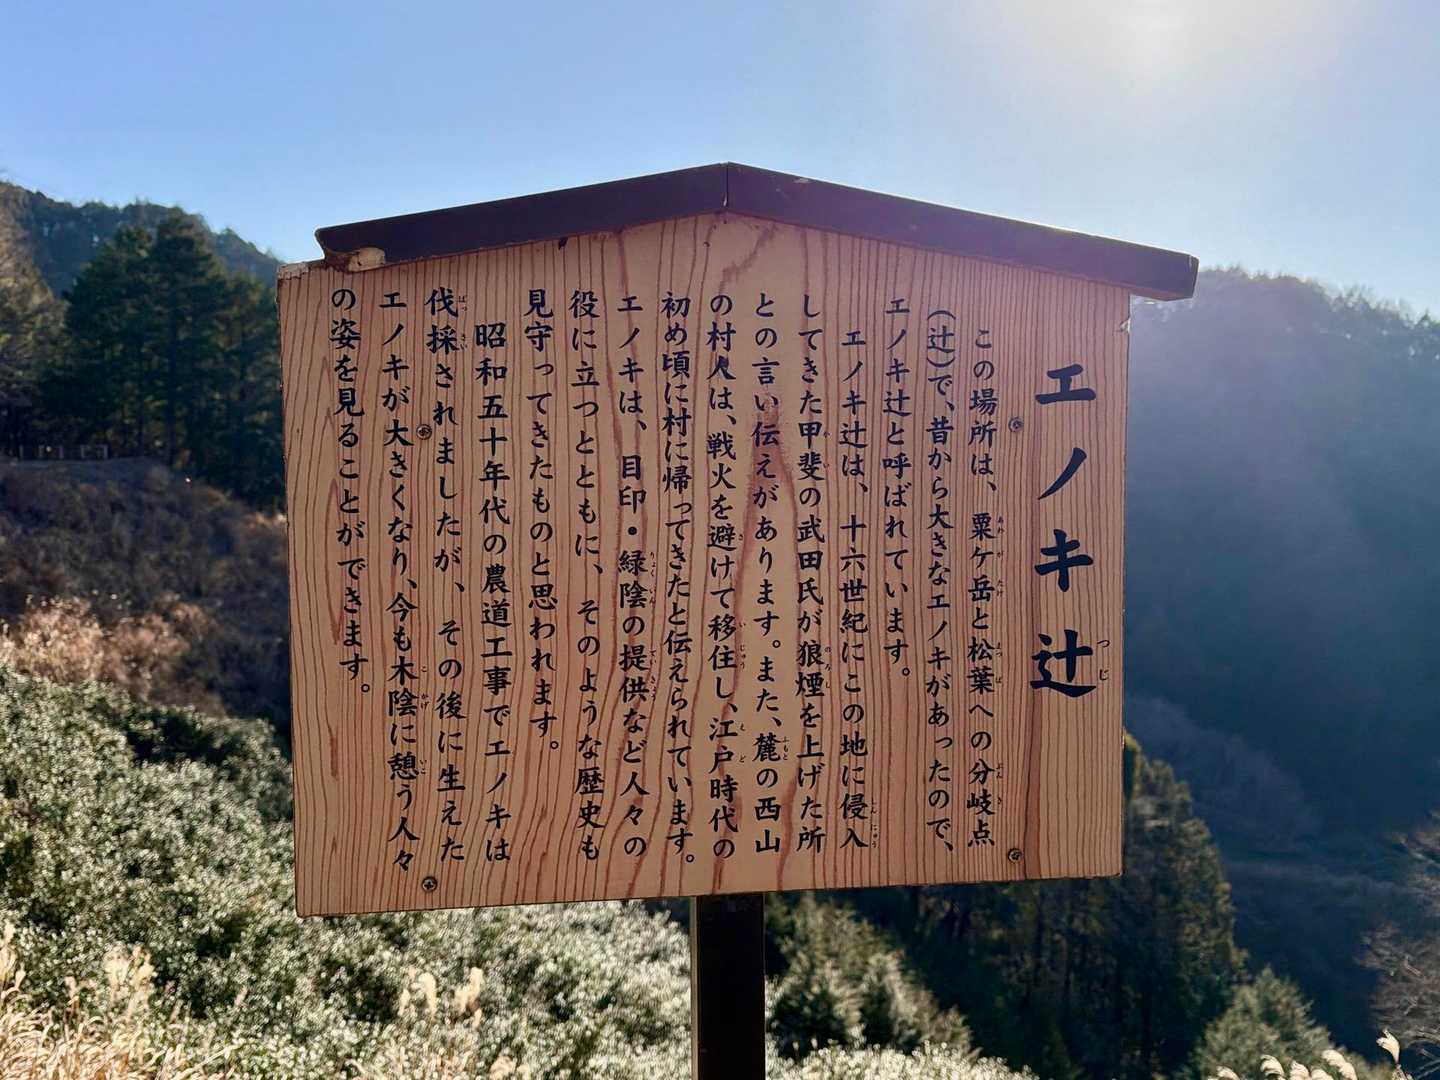 エノキ辻
つじ
この場所は、粟ケ岳と松葉への分岐点
あわがたけ
まつば
ぶんき
(辻)で、昔から大きなエノキがあったので、
エノキ辻と呼ばれています。
エノキ辻は、十六世紀にこの地に侵入
しんにゅう
してきた甲斐の武田氏が狼煙を上げた所
かい
のろし
との言い伝えがあります。また、麓の西山
ふもと
の村人は、戦火を避けて移住し、江戸時代の
さ
いじゅう
えど
初め頃に村に帰ってきたと伝えられています。
エノキは、目印・緑陰の提供など人々の
りょくいん
ていきょう
役に立つとともに、そのような歴史も
見守ってきたものと思われます。
昭和五十年代の農道工事でエノキは
伐採されましたが、その後に生えた
ばっさい
エノキが大きくなり、今も木陰に憩う人々
こかげ
いこ
の姿を見ることができます。